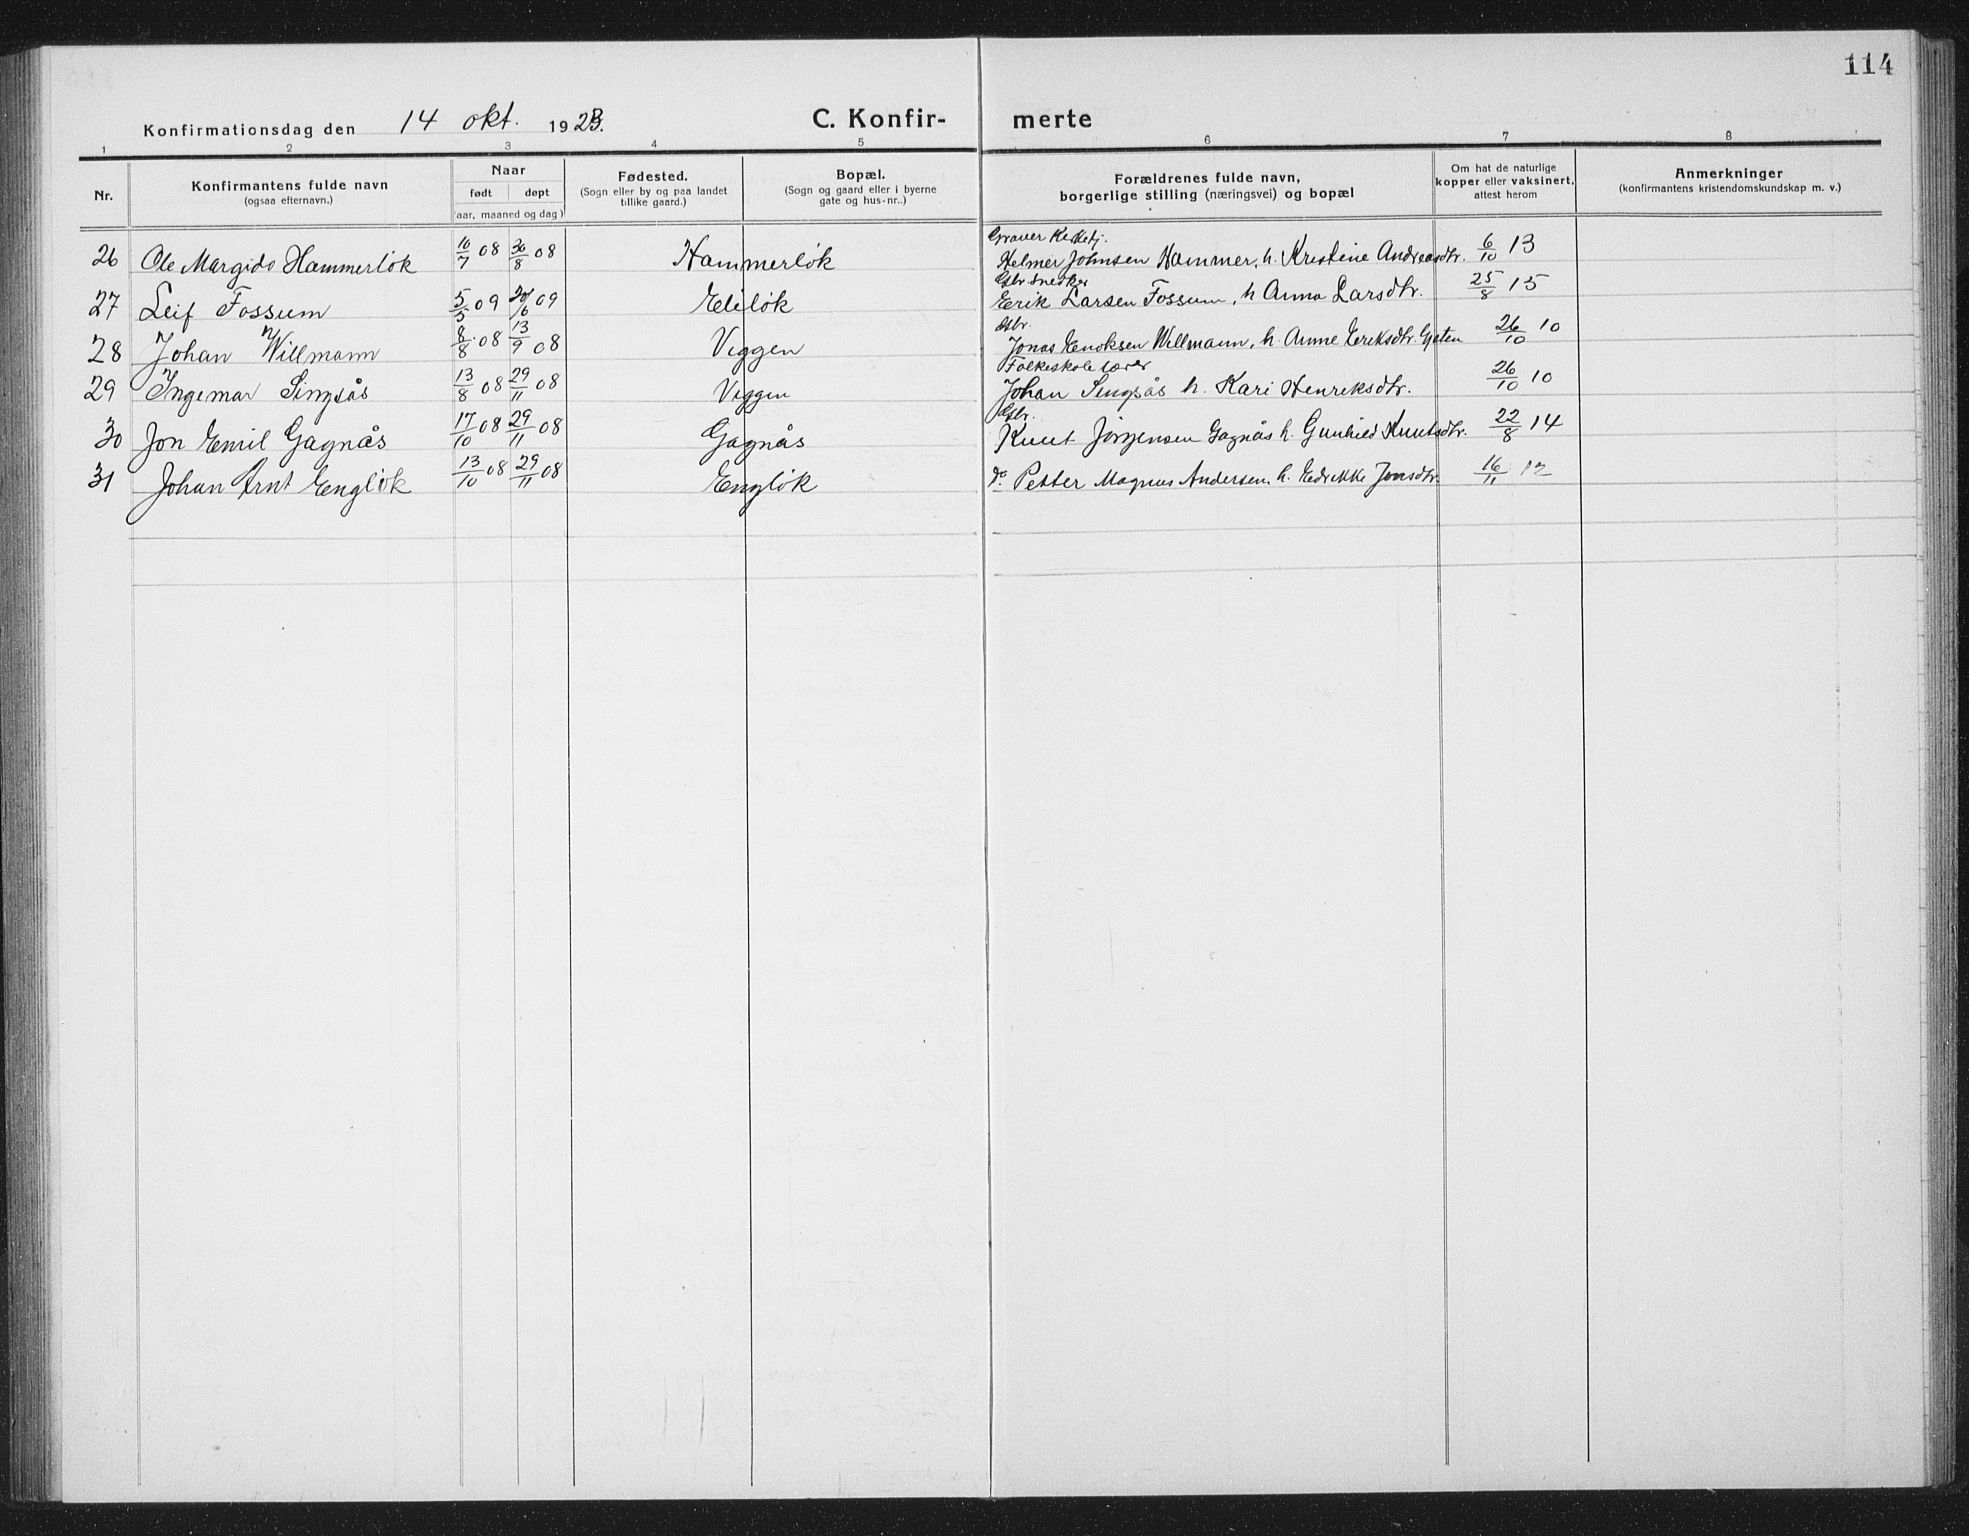 114
Konfirmationsdag den 14 okt. 1923.
C. Konfir-
merte
1 2 3 4 5 6 7 8
Nr.
Konfirmantens fulde navn
(ogsaa efternavn.)
Naar
født døpt
(aar, maaned og dag)
Fødested.
(Sogn eller by og paa landet
tillike gaard.)
Bopæl.
(Sogn og gaard eller i byerne
gate og hus-nr..)
Forældrenes fulde navn,
borgerlige stilling (næringsvei) og bopæl
Om hat de naturlige
kopper eller vaksinert,
attest herom
Anmerkninger
(konfirmantens kristendomskundskap m. v.)
Graver
26 Ole Margido Hammerløk 10/7 08 30/8 08 Hammerløk Helmer Johnsen Hammer, h. Kristine Andreasdtr. 6/10 13
Gbr. snedker
27 Leif Fossum 5/5 09 20/6 09 Eliløk Erik Larsen Fossum, h Anna Larsdtr. 25/8 15
Gbr.
28 Johan Willmann 8/8 08 13/9 08 Viggen Jonas Enoksen Willmann, h. Anne Eriksdtr. Gjeten 26/10 10
Folkeskolelærer
29 Ingemar Singsås 13/8 08 29/11 08 Viggen Johan Singsås h. Kari Henriksdtr. 26/10 10
Gbr.
30 Jon Emil Gagnås 17/10 08 29/11 08 Gagnås Knut Jørgensen Gagnås h. Gunhild Knutsdtr. 22/8 14
31 Johan Arnt Engløk 13/10 08 29/11 08 Engløk do. Petter Magnus Andersen, h. Fredrikke Jonsdtr. 16/11 12